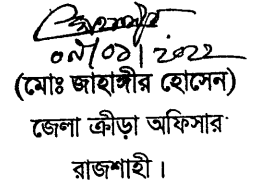 ০৯/০১/২০২২
(মোঃ জাহাঙ্গীর হোসেন)
জেলা ক্রীড়া অফিসার
রাজশাহী।